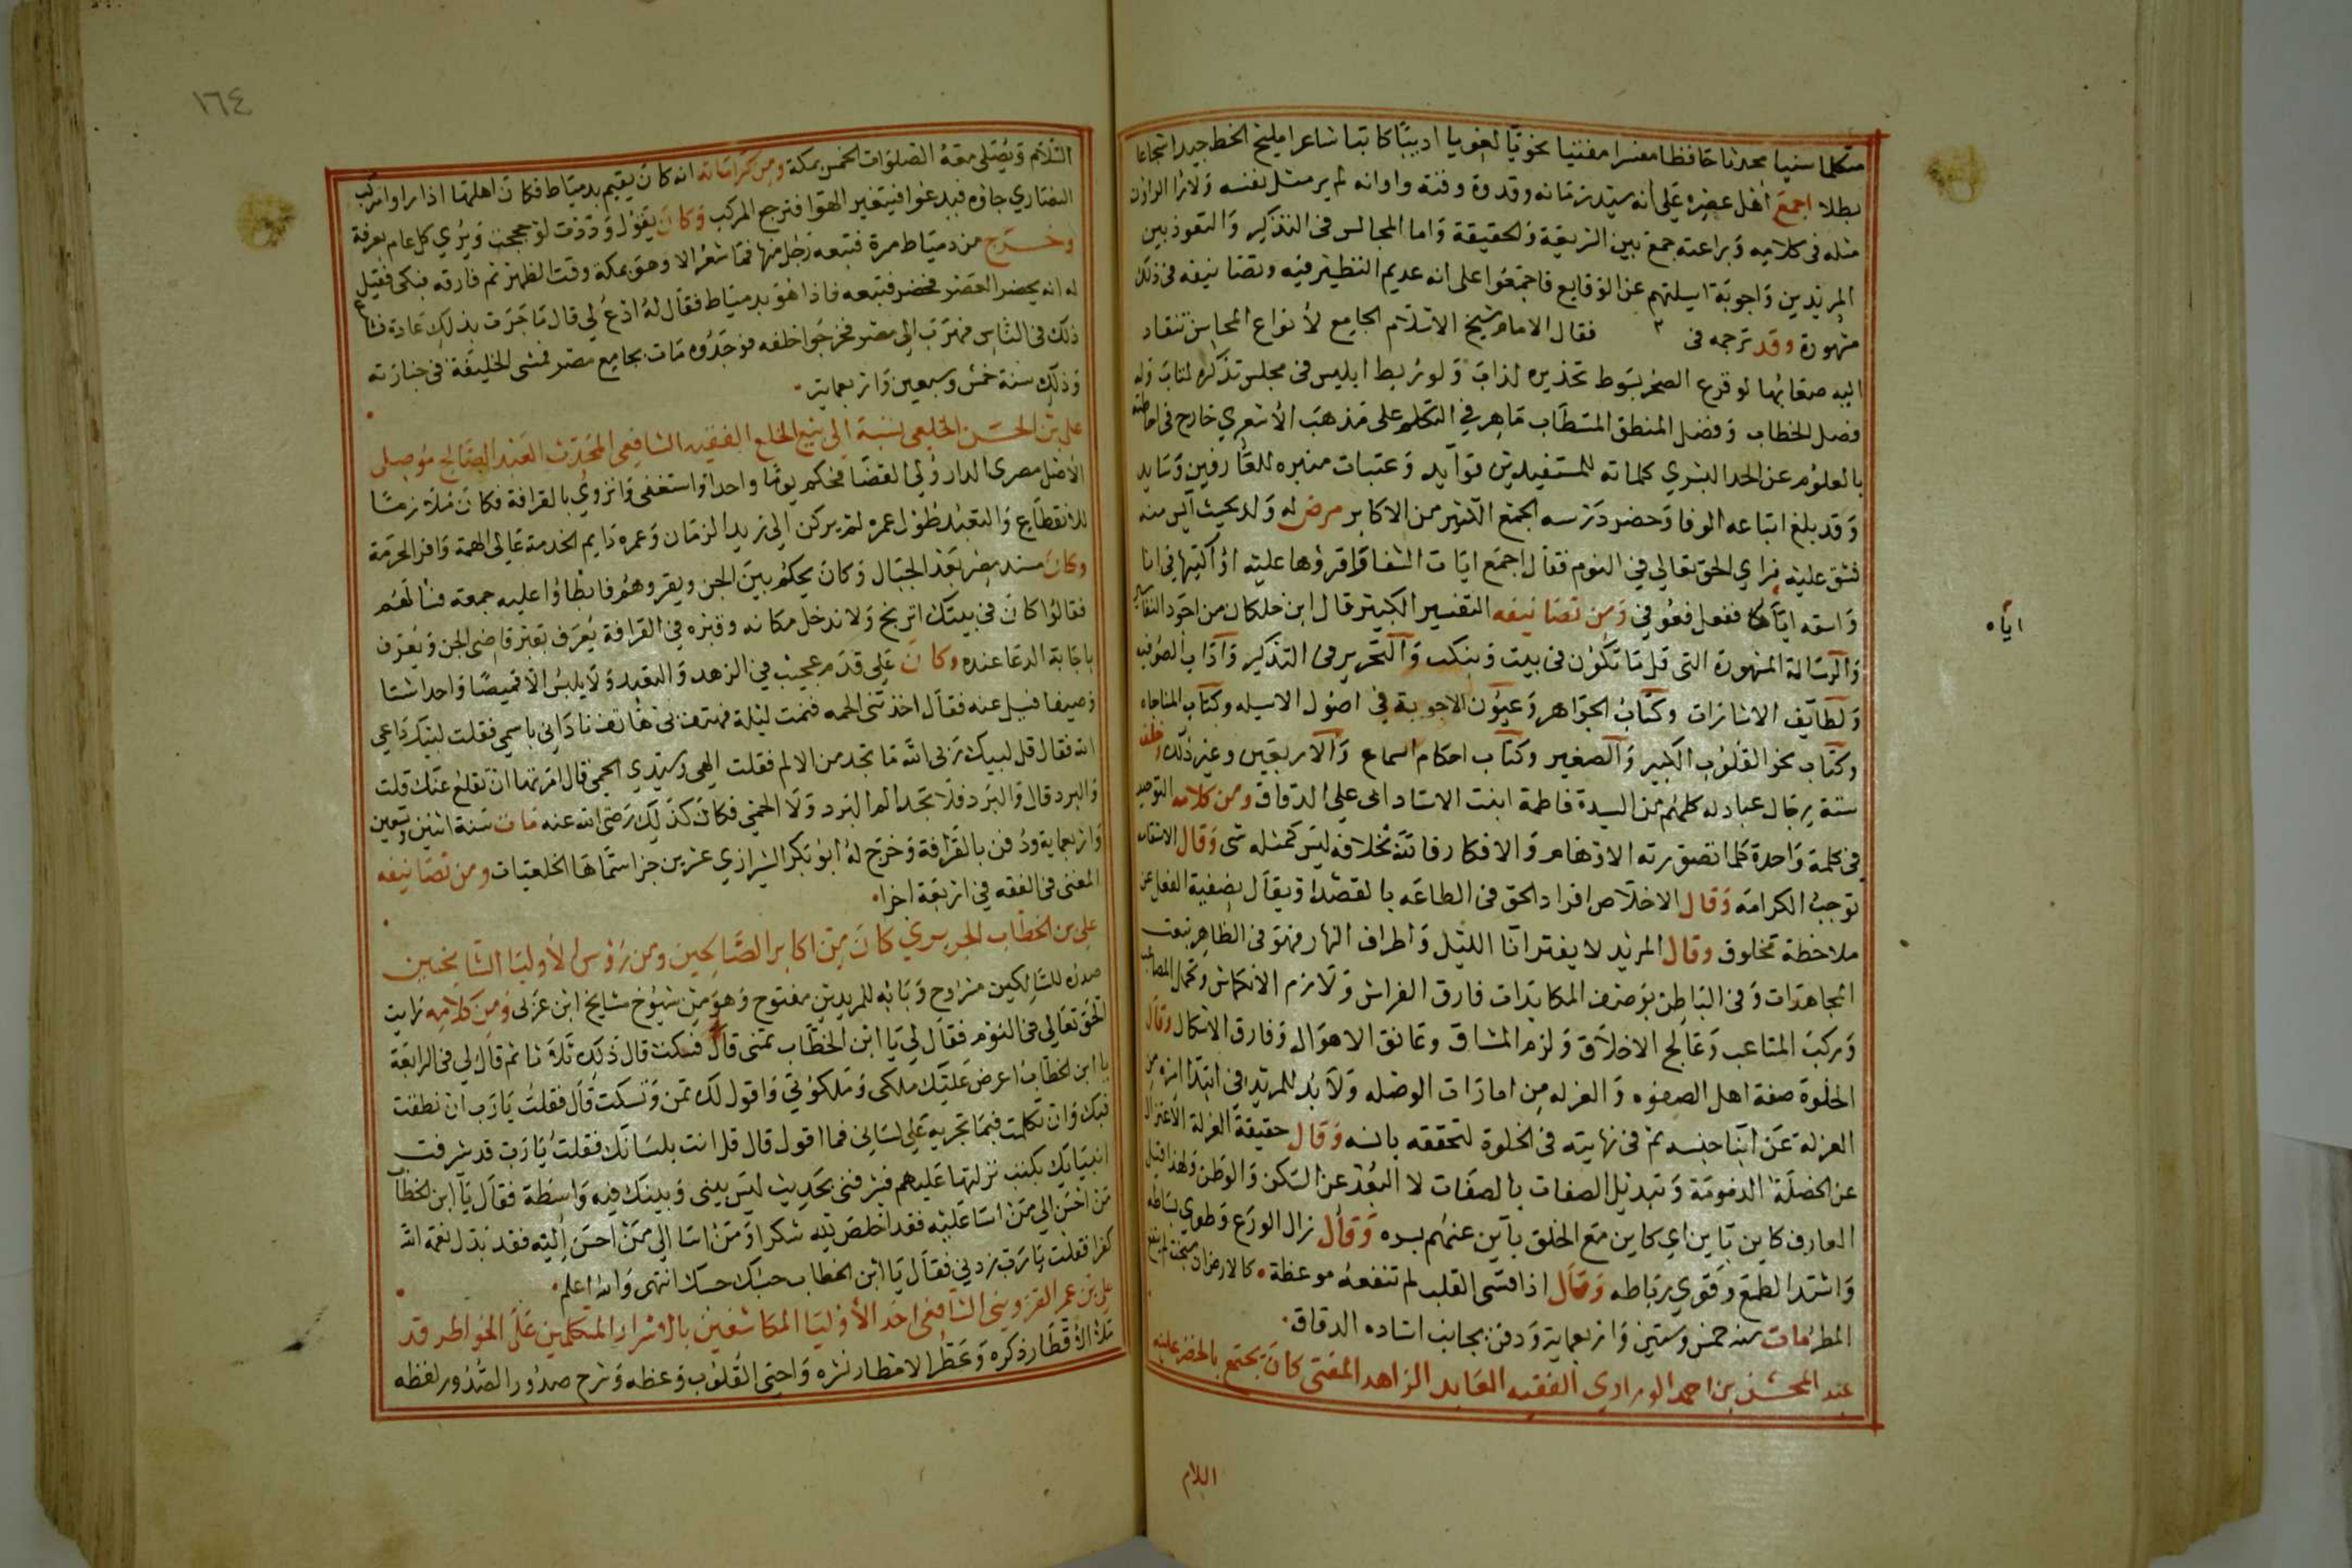 متكلما سنيا محدثا حافظا مفسرا مفتيا نحويّا لغويا اديبًا كاتبا شاعرا مليح الخط جيدا شجاعا
بطلا اجمع أهل عصره على أنه سيد زمانه وقدوة وقته واوانه لم ير مثل نفسه ولا رأا الراؤن
مثله في كلامه وبراعته جمع بين الشريعة والحقيقة واما المجالس في التذكير والتعوذ بين
المريدين واجوبة اسيلتهم عن الوقايع فاجمعوا على انه عديم النظير فيه وتصانيفه في ذلك
مشهورة وقد ترجمه في ٢ فقال الامام شيخ الاسلام الجامع لأنواع المحاسن تنقاد
اليه صعابها لو قرع الصخر بسوط تحذيره لذاب ولو ربط ابليس في مجلس تذكره لتاب وله
فصل الخطاب وفضل المنطق المستطاب ماهر في التكلم على مذهب الأشعري خارج في احاطته
بالعلوم عن الحد البشري كلماته للمستفيدين فوآيد وعتبات منبره للعارفين وسايد
وقد بلغ اتباعه الوفا وحضر درسه الجمع الكثير من الاكابر مرض له ولد بحيث آيس منه
فشق عليه فراي الحق تعالي في النوم فقال اجمع ايات الشفا واقرؤها عليه او اكتبها في انا
واسقه اياها ففعل فعوفي ومن تصانيفه التفسير الكبير قال ابن خلكان من اجود التفاسير
والرسالة المشهورة التي قل ما تكون في بيت وينكب والتحرير في التذكير وآداب الصوفيه
ولطايف الاشارات وكتاب الجواهر وعيون الاجوبة في اصول الاسيله وكتاب المناجاه
وكتاب نحو القلوب الكبير والصغير وكتاب احكام السماع والاربعين وغير ذلك وخلف
ستة رجال عبادله كلهم من السيدة فاطمة ابنت الاستاد ابي علي الدقاق ومن كلامه التوحيد
في كلمة واحدة كلما تصورته الاوهام والافكار فانه بخلافه ليس كمثله شى وقال الاستقامه
توجب الكرامه وقال الاخلاص افراد الحق في الطاعه بالقصد او يقال بصفية الفعل عن
ملاحظة مخلوق وقال المريد لا يفتر انا الليل واطراف النهار فهو في الظاهر بنعت
المجاهدات وفي الباطن بوصف المكابدات فارق الفراش ولازم الانكماش وتحمل المصاعب
وركب المتاعب وعالج الاخلاق ولزم المشاق وعانق الاهوال وفارق الاشكال وقال
الخلوة صفة اهل الصفوه والعزله من امارات الوصله ولا بد للمريد في ابتدا امره من
العزلة عن ابنا جنسه ثم في نهايته في الخلوة لتحققه بانسه وقال حقيقة العزلة الاعتزال
عن الخصلة المذمومة وتبديل الصفات بالصفات لا البعد عن السكن والوطن ولهذا قيل
العارف كاين باين اي كاين مع الخلق باين عنهم بسره وقال زال الورع وطوي بساطه
واشتد الطمع وقوي رباطه وقال اذا قسى القلب لم تنفعه موعظة كالارض ان سبخت لم ينفع
المطر مات سنه خمس وستين واربعماية ودفن بجانب استاده الدقاق
عبد المحسن بن احمد الورادي الفقيه العابد الزاهد المفتى كان يجتمع بالخضر عليه
السلام
اياه
١٦٤
السلام ويصلى معه الصلوات الخمس بمكة ومن كراماته انه كان يقيم بدمياط فكان اهلها اذا راوا مركب
النصاري جاؤه فيدعوا فيتغير الهوا فترجع المركب وكان يقول وددت لو حججت ويري كل عام بعرفة
وخرج من دمياط مرة فتبعه رجل منها فما شعر الا وهو بمكة وقت الظهر ثم فارقه فبكى فقيل
له انه يحضر العصر فحضر فتبعه فاذا هو بدمياط فقال له ادع لي قال ما جرت بذلك عادة فشاع
ذلك في الناس فهرب الى مصر فخرجوا خلفه فوجدوه مات بجامع مصر فمشى الخليفة في جنازته
وذلك سنة خمس وسبعين واربعماية
علي بن الحسن الخلعي نسبة الى بيع الخلع الفقيه الشافعي المحدث العبد الصالح موصلي
الأصل مصرى الدار ولي القضا فحكم يوما واحدا واستعفى وانزوي بالقرافة فكان ملازما
للانقطاع والتعبد طول عمره لم يركن الى زيد الزمان وعمره دايم الخدمة عالى الهمة وافر الحرمة
وكان مسند مصر بعد الحبال وكان يحكم بين الجن ويقروهم فابطاوا عليه جمعة فسألهم
فقالوا كان في بيتك اترنج ولا ندخل مكانه وقبره في القرافة يعرف بقبر قاضى الجن ويعرف
باجابة الدعا عنده وكان على قدم عجيب في الزهد والتعبد ولا يلبس الا قميصا واحدا شتا
وصيفا فسيل عنه فقال اخذتنى الحمه فنمت ليلة فهتف بي هاتف ناداني باسمي فقلت لبيك داعي
الله فقال قل لبيك ربى الله ما تجد من الالم فقلت الهي وسيدي الحمى قال امرتها ان تقلع عنك قلت
والبرد قال والبرد فلا تجد الم البرد ولا الحمى فكان كذلك رضى الله عنه مات سنة اثنين وتسعين
واربعماية ودفن بالقرافة وخرج له ابو بكر الشيرازي عشرين جزا سماها الخلعيات ومن تصانيفه
المغنى في الفقه في اربعة اجزا
علي بن الخطاب الجريري كان من اكابر الصالحين ومن رؤس الأوليا السابحين
صدره للسالكين مشروح وبابه للمريدين مفتوح وهو من شيوخ مشايخ ابن عربى ومن كلامه رايت
الحق تعالى في النوم فقال لي يا ابن الخطاب تمنى قال فسكت قال ذلك ثلاثا ثم قال لي في الرابعة
يا ابن الخطاب اعرض عليك ملكى وملكوتي واقول لك تمن وتسكت قال فقلت يا رب ان نطقت
فبك وان تكلمت فبما تجريه على لساني فما اقول قال قل انت بلسانك فقلت يا رب قد شرفت
انبيايك بكتب نزلتها عليهم فشرفني بحديث ليس بيني وبينك فيه واسطة فقال يا ابن الخطاب
من احسن الى من اسا عليه فقد اخلص لله شكرا ومن اسا الى من احسن اليه فقد بدل نعمة الله
كفرا فقلت يا رب زدني فقال يا ابن الخطاب حسبك حسبك انتهى والله اعلم
علي بن عمر القزويني الشافعى احد الأوليا المكاشفين بالاسرار المتكلمين على الخواطر قد
ملأ الأقطار ذكره وعطر الامطار نشره واحيى القلوب وعظه وشرح صدور الصدور لفظه